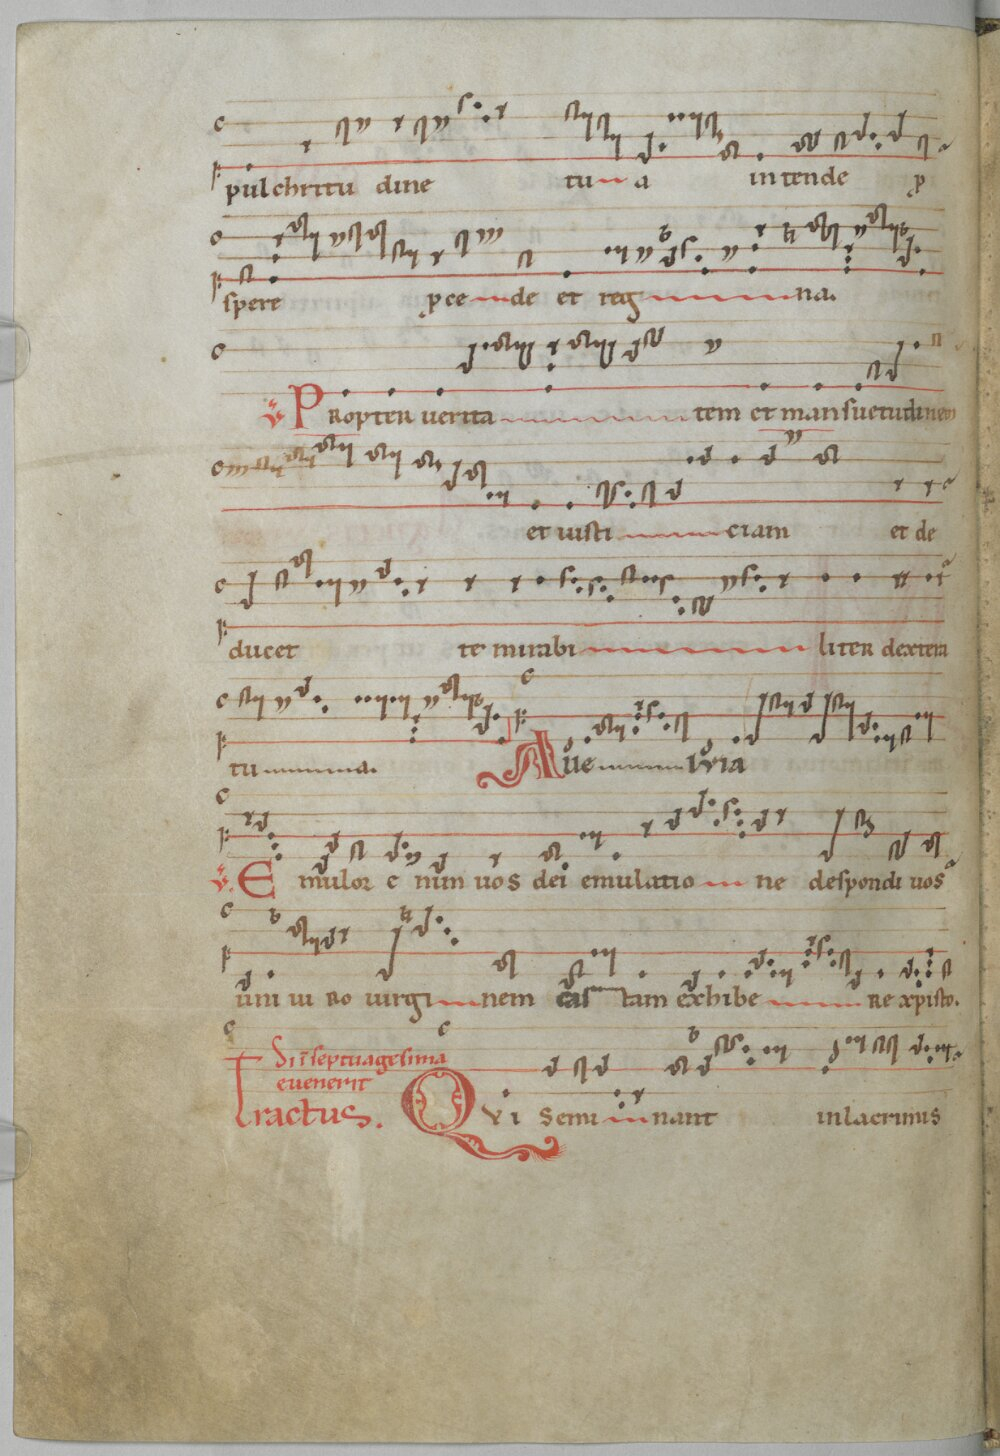 pulchritu dine tu a intende p
spere pce de et reg na.
V PROpteR uerita tem et mansuetudinem
et iusti ciam et de
ducet te mirabi liteR dextera
tu a.
Alle lvia
V. Emulor e nim uos dei emulatio ne despondi uos
uni ui Ro uirgi nem cas tam exhibe Re xpisto.
Si i septuagesima
euenerit
Tractus. Qvi semi nant in lacrimis